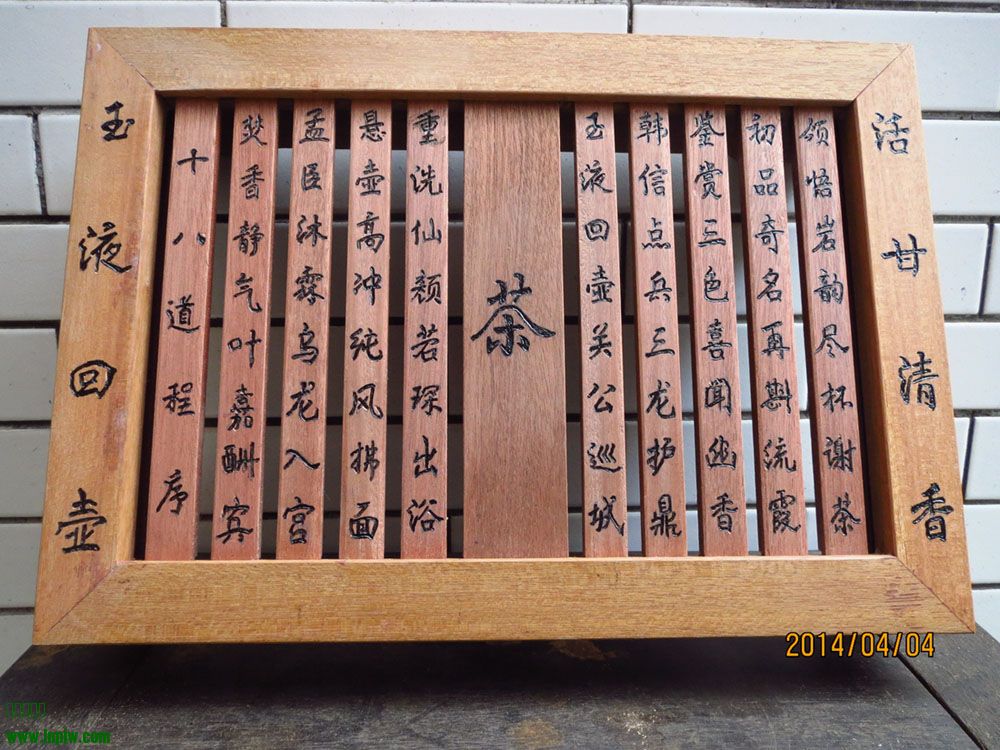 玉液回壶
十八道程序
焚香静气叶嘉酬宾
孟臣沐霧乌龙入宫
悬壶高冲纯风拂面
重洗仙颜若琛出浴
茶
玉液回壶关公巡城
韩信点兵三龙护鼎
鉴赏三色喜闻幽香
初品奇名再斟流霞
领悟岩韵尽杯谢茶
活甘清香
2014/04/04